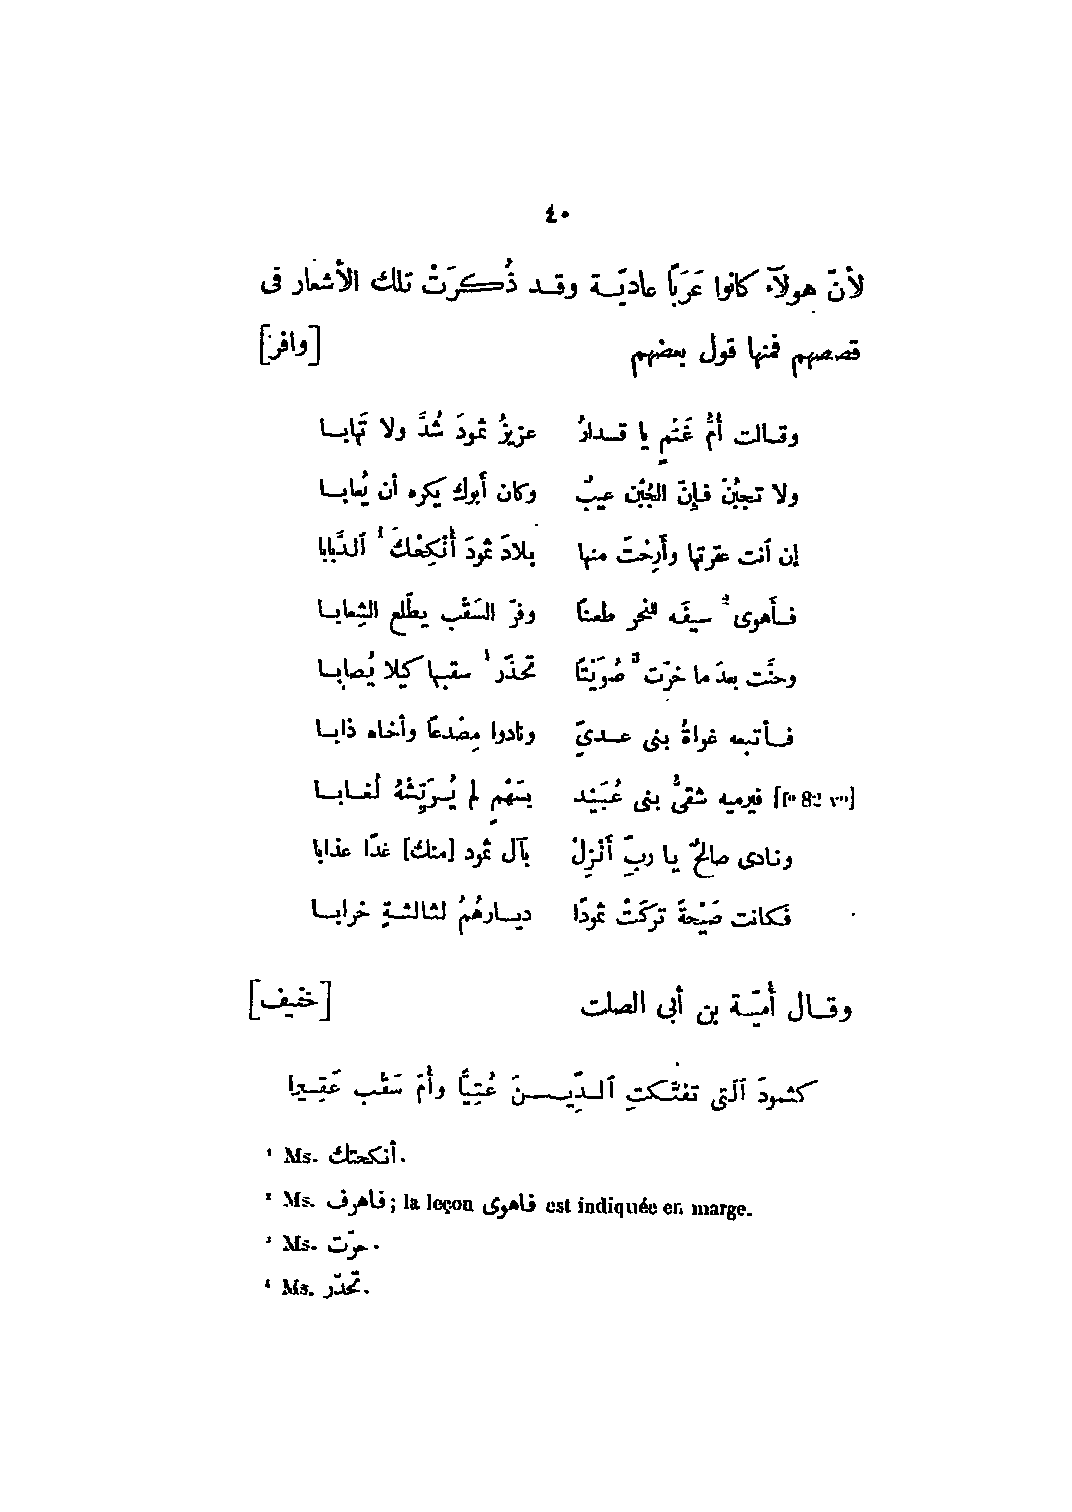 ٤٠
لأنّ هولآء كانوا عَرَبًا عاديّة وقد ذُكرَتْ تلك الأشعار فى
قصصهم فمنها قول بعضهم [وافر]
وقالت أُمُّ غَنْمٍ يا قدارُ عزيزُ ثمودَ شُدَّ ولا تَهابا
ولا تجبُنْ فإنّ الجُبْن عيبٌ وكان أبوك يكره أن يُعابا
إن آنت عقرتها وأَرِحْتَ منها بلادَ ثمودَ أُنْكِحْكَ ¹ ٱلدَّبابا
فأهوى ² سيفَه للنحر طعنًا وفرّ السَقْب يطّلع الشِعابا
وحنَّت بعدَ ما خرّت ³ صُوَيْتًا تحذّر ¹ سقبها كيلا يُصابا
فأتبعه غواةُ بنى عدىٍّ ونادوا مِصْدعًا وأخاه ذابا
[f° 82 v°] فيرميه شقىُّ بنى عُبَيْد بسَهْمٍ لم يُرَيّشْهُ لُغابا
ونادى صالحٌ يا ربّ أَنْزِلْ بآل ثمود [منك] غدًا عذابا
فكانت صَيْحةً تركَتْ ثمودًا ديارهُمُ لثالثةٍ خرابا
وقال أُميّة بن أبى الصلت [خفيف]
كثمودَ ٱلتى تفتّكتِ ٱلدِّينَ عُتِيًّا وأُمّ سَقْب عَقِيرا
¹ Ms. أنكحتك.
² Ms. فاهرف; la leçon فاهوى est indiquée en marge.
³ Ms. حرّت.
⁴ Ms. تحدّر.